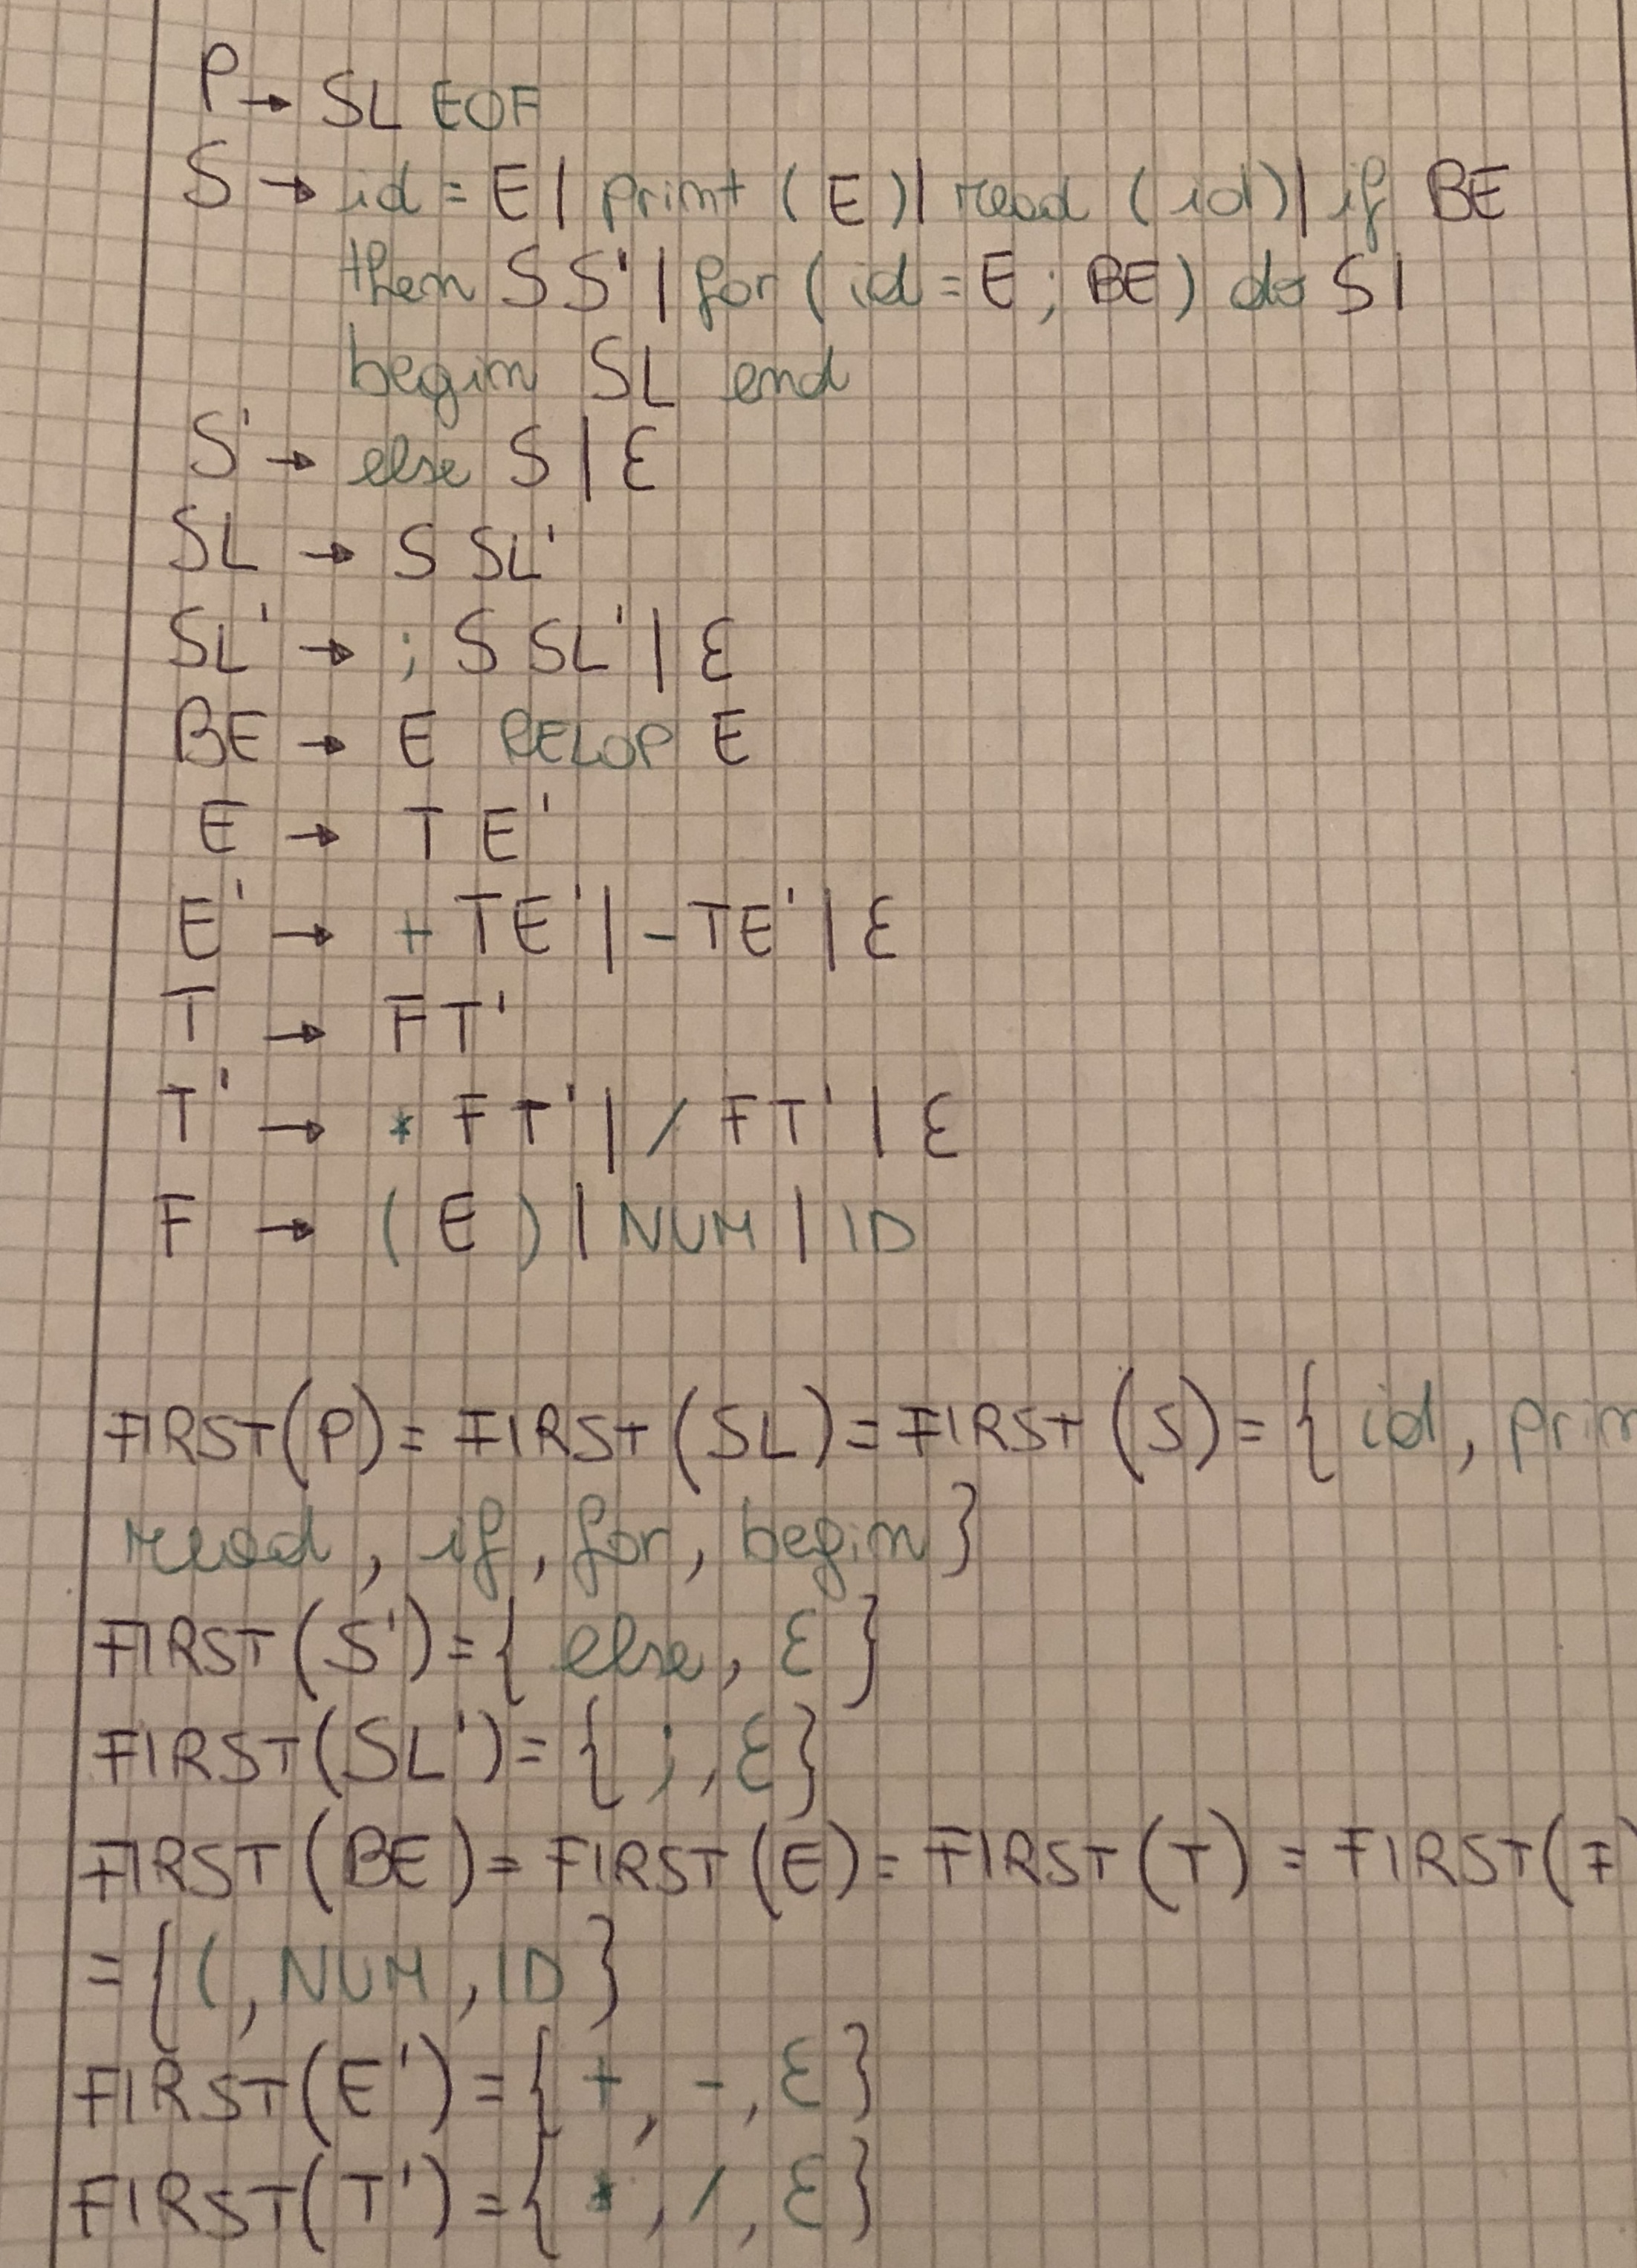 P → SL EOF
S → id = E | print (E) | read (id) | if BE
then S S' | for (id = E ; BE) do S |
begin SL end
S' → else S | ε
SL → S SL'
SL' → ; S SL' | ε
BE → E RELOP E
E → T E'
E' → + TE' | - TE' | ε
T → FT'
T' → * FT' | / FT' | ε
F → ( E ) | NUM | ID
FIRST(P) = FIRST(SL) = FIRST(S) = { id, prin
read, if, for, begin }
FIRST(S') = { else, ε }
FIRST(SL') = { ; , ε }
FIRST(BE) = FIRST(E) = FIRST(T) = FIRST(F)
= { (, NUM, ID }
FIRST(E') = { +, -, ε }
FIRST(T') = { *, /, ε }